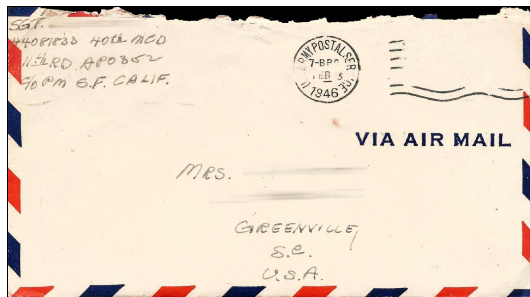 SGT.
44081833 40th MCD
11th RD. APO 352
C/O PM S.F. CALIF.
U.S. ARMY POSTAL SERVICE
FEB 3
1946
VIA AIR MAIL
MRS.
GREENVILLE,
S.C.
U.S.A.